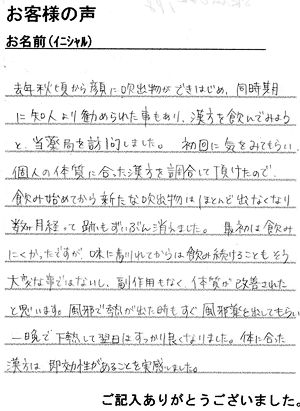 お客様の声
お名前(イニシャル)
去年秋頃から顔に吹出物ができはじめ、同時期
に知人より勧められた事もあり、漢方を飲んでみよう
と、当薬局を訪問しました。 初回に気をみてもらい
個人の体質に合った漢方を調合して頂けたので、
飲み始めてから新たな吹出物はほとんど出なくなり
数ヶ月経って跡もずいぶん消えました。 最初は飲み
にくかったですが、味に慣れてからは飲み続けることもそう
大変な事ではないし、副作用もなく、体質が改善された
と思います。風邪で熱が出た時もすぐ風邪薬を出してもらい
一晩で下熱して翌日はすっかり良くなりました。体に合った
漢方は即効性があることを実感しました。
ご記入ありがとうございました。